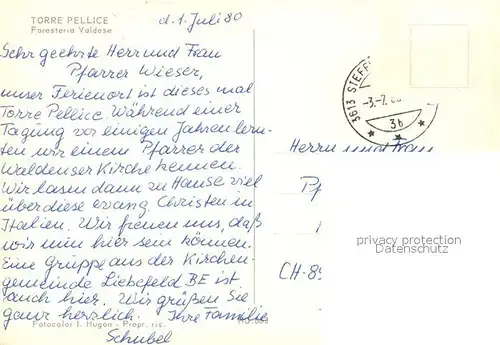 TORRE PELLICE
Foresteria Valdese
d. 1. Juli 80
Sehr geehrte Herr und Frau
Pfarrer Wieser,
unser Ferienort ist dieses mal
Torre Pellice. Während einer
Tagung vor einigen Jahren lern-
ten wir einem Pfarrer der
Waldenser Kirche kennen.
Wir lasen dann zu Hause viel
über diese evang. Christen in
Italien. Wir freuen uns, daß
wir nun hier sein können.
Eine Gruppe aus der Kirchen-
gemeinde Liebefeld BE ist
auch hier. Wir grüßen Sie
ganz herzlich. Ihre Familie
Schubel
Fotocolor I. Hugon - Propr. ris.
3613 STEFF
-3.-7.
3b
Herrn und Frau
Pf
CH-89
privacy protection
Datenschutz